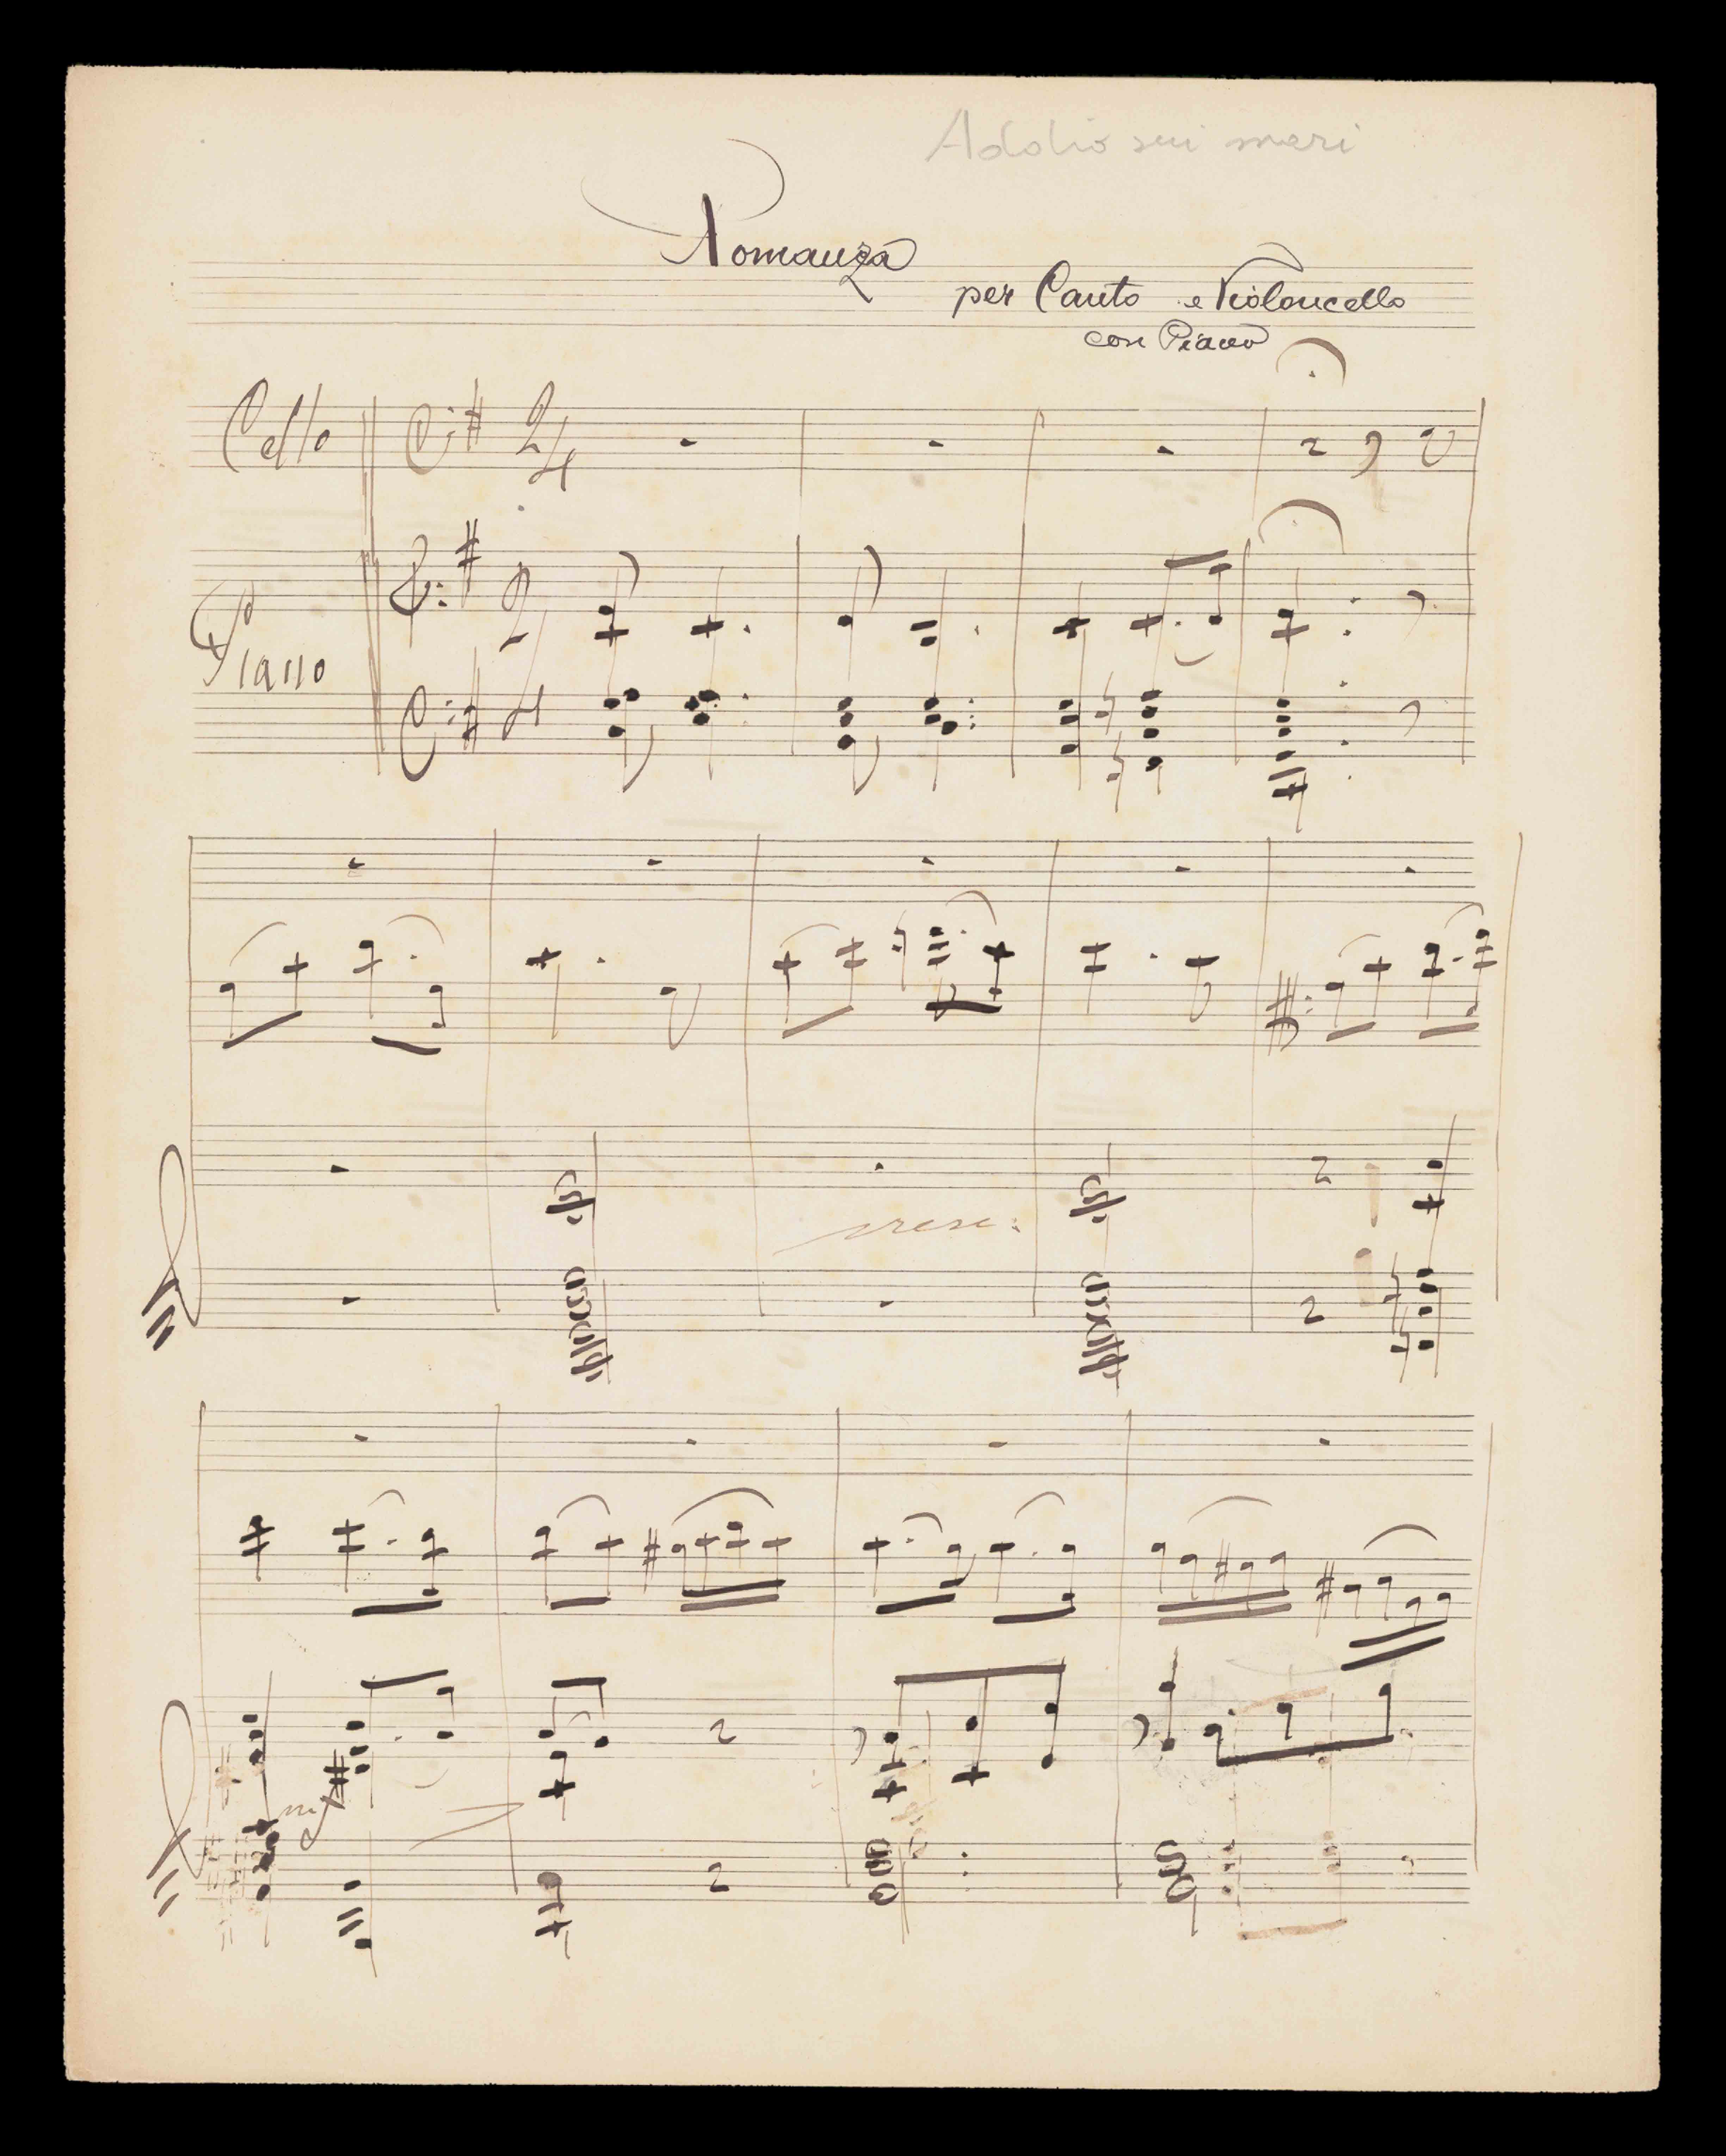 Addio sui mari
Romanza
per Canto e Violoncello
con Piano
Cello
2/4
Piano
2/4
cresc:
mf